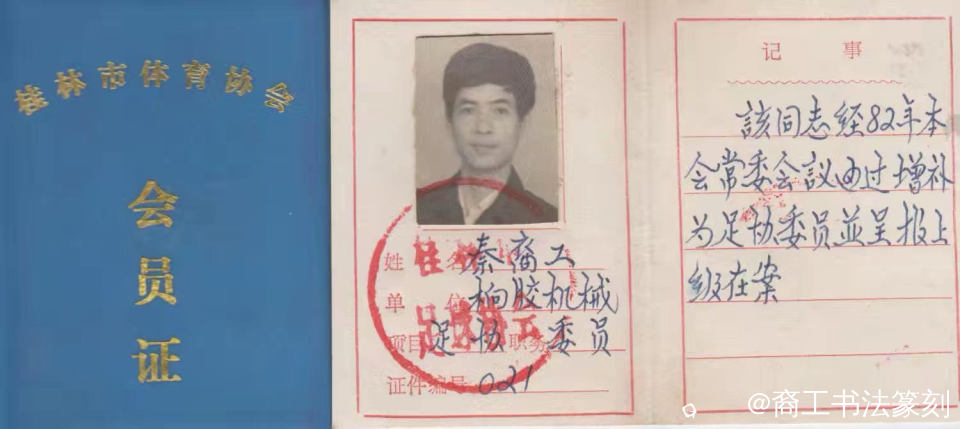 桂林市体育协会
会员证
姓名 秦裔工
单位 桷胶机械
项目 足协 职务 委员
证件编号 021
记事
該同志经82年本
会常委会議通过增补
为足协委员並呈报上
级在案
@裔工书法篆刻